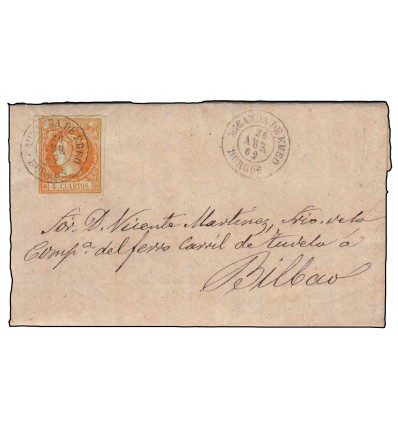 MIRANDA DE EBRO
26
ABR
69
BURGOS
4 CUARTOS
Sor. D. Vicente Martinez, Srio. de la
Compª. del ferro Carril de tudela á
Bilbao